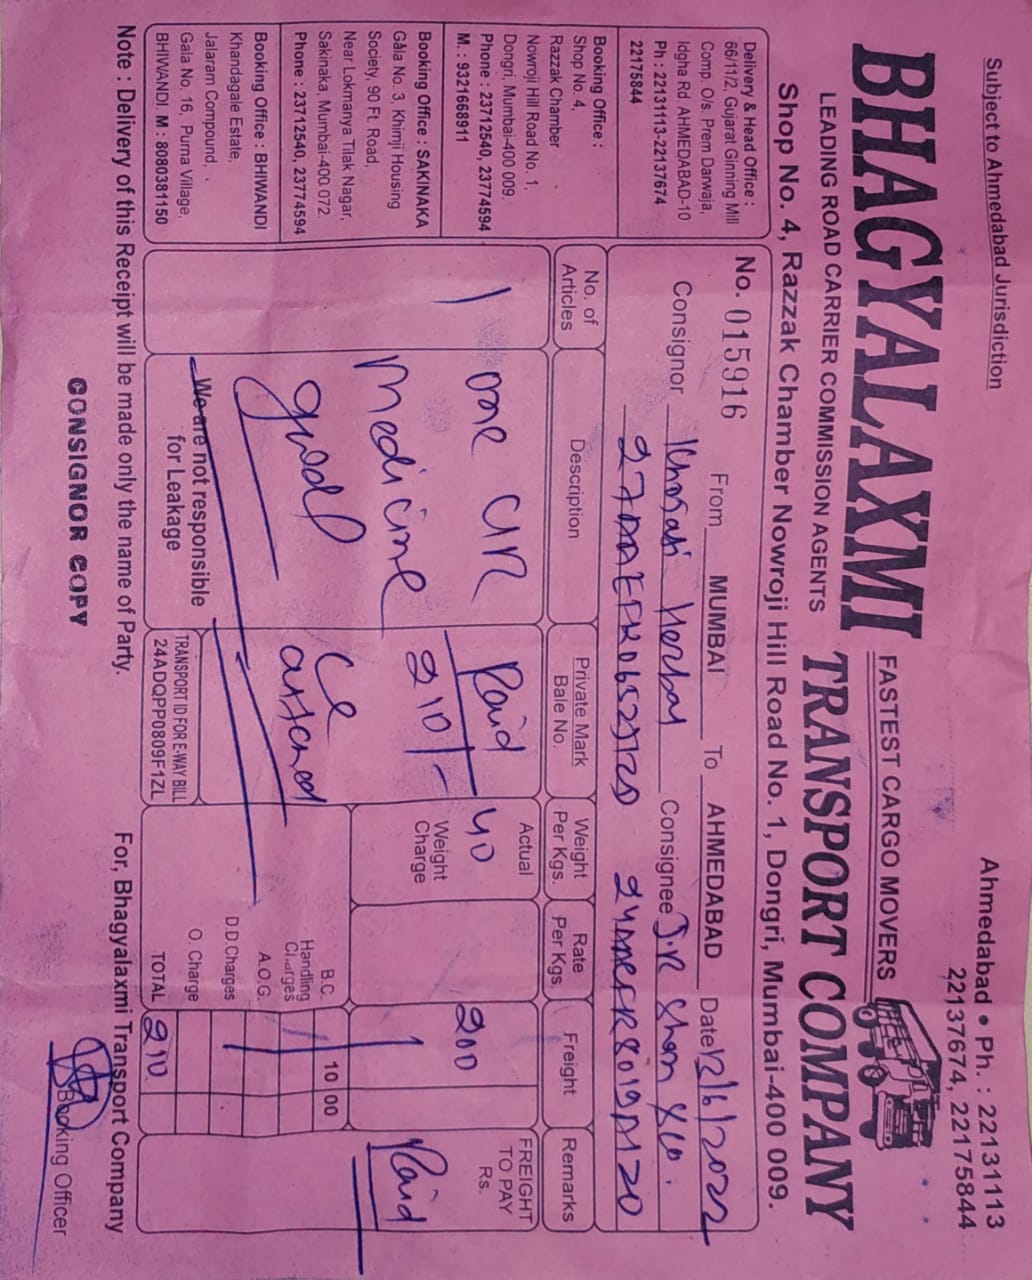 Subject to Ahmedabad Jurisdiction
Ahmedabad • Ph. : 22131113
22137674, 22175844
BHAGYALAXMI
FASTEST CARGO MOVERS
TRANSPORT COMPANY
LEADING ROAD CARRIER COMMISSION AGENTS
Shop No. 4, Razzak Chamber Nowroji Hill Road No. 1, Dongri, Mumbai-400 009.
Delivery & Head Office :
66/11/2, Gujarat Ginning Mill
Comp. O/s. Prem Darwaja,
Idgha Rd. AHMEDABAD-10
Ph : 22131113-22137674
22175844
Booking Office :
Shop No. 4,
Razzak Chamber
Nowroji Hill Road No. 1,
Dongri, Mumbai-400 009.
Phone : 23712540, 23774594
M. : 9321668911
Booking Office : SAKINAKA
Gala No. 3, Khimji Housing
Society, 90 Ft. Road,
Near Lokmanya Tilak Nagar,
Sakinaka, Mumbai-400 072.
Phone : 23712540, 23774594
Booking Office : BHIWANDI
Khandagale Estate,
Jalaram Compound,
Gala No. 16, Purna Village,
BHIWANDI. M : 8080381150
No. 015916 From MUMBAI To AHMEDABAD Date 12/6/2022
Consignor Herbal Consignee J.R
No. of Articles
Description
Private Mark
Bale No.
Weight
Per Kgs.
Rate
Per Kgs.
Freight
Remarks
1
one
Medicine
good
Paid
210/-
Actual
40
Weight
Charge
200
FREIGHT
TO PAY
Rs.
Paid
B.C. 10 00
Handling
Charges
A.O.G.
D.D.Charges
O. Charge
TOTAL 210
We are not responsible
for Leakage
TRANSPORT ID FOR E-WAY BILL
24ADQPP0809F1ZL
Note : Delivery of this Receipt will be made only the name of Party.
For, Bhagyalaxmi Transport Company
CONSIGNOR COPY
Booking Officer